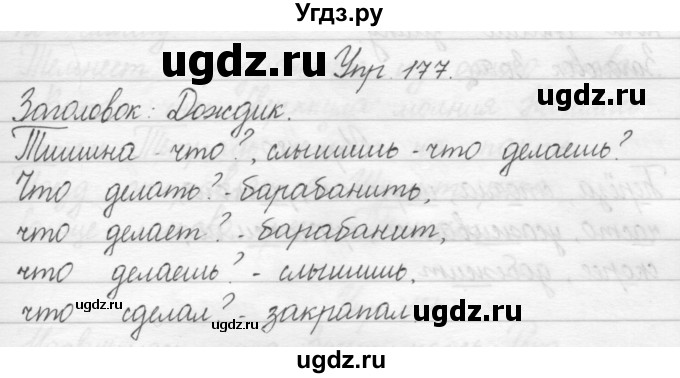 Угдз.ру
ugdz.ru Упр 177.
Заголовок: Дождик.
ugdz.ru
Тишина - что?, слышишь - что делаешь?
Что делать? - барабанить,
что делает? - барабанит,
ugdz.ru
что делаешь? - слышишь,
ugdz.ru ugdz.ru
что сделал? - закрапал
ugdz.ru